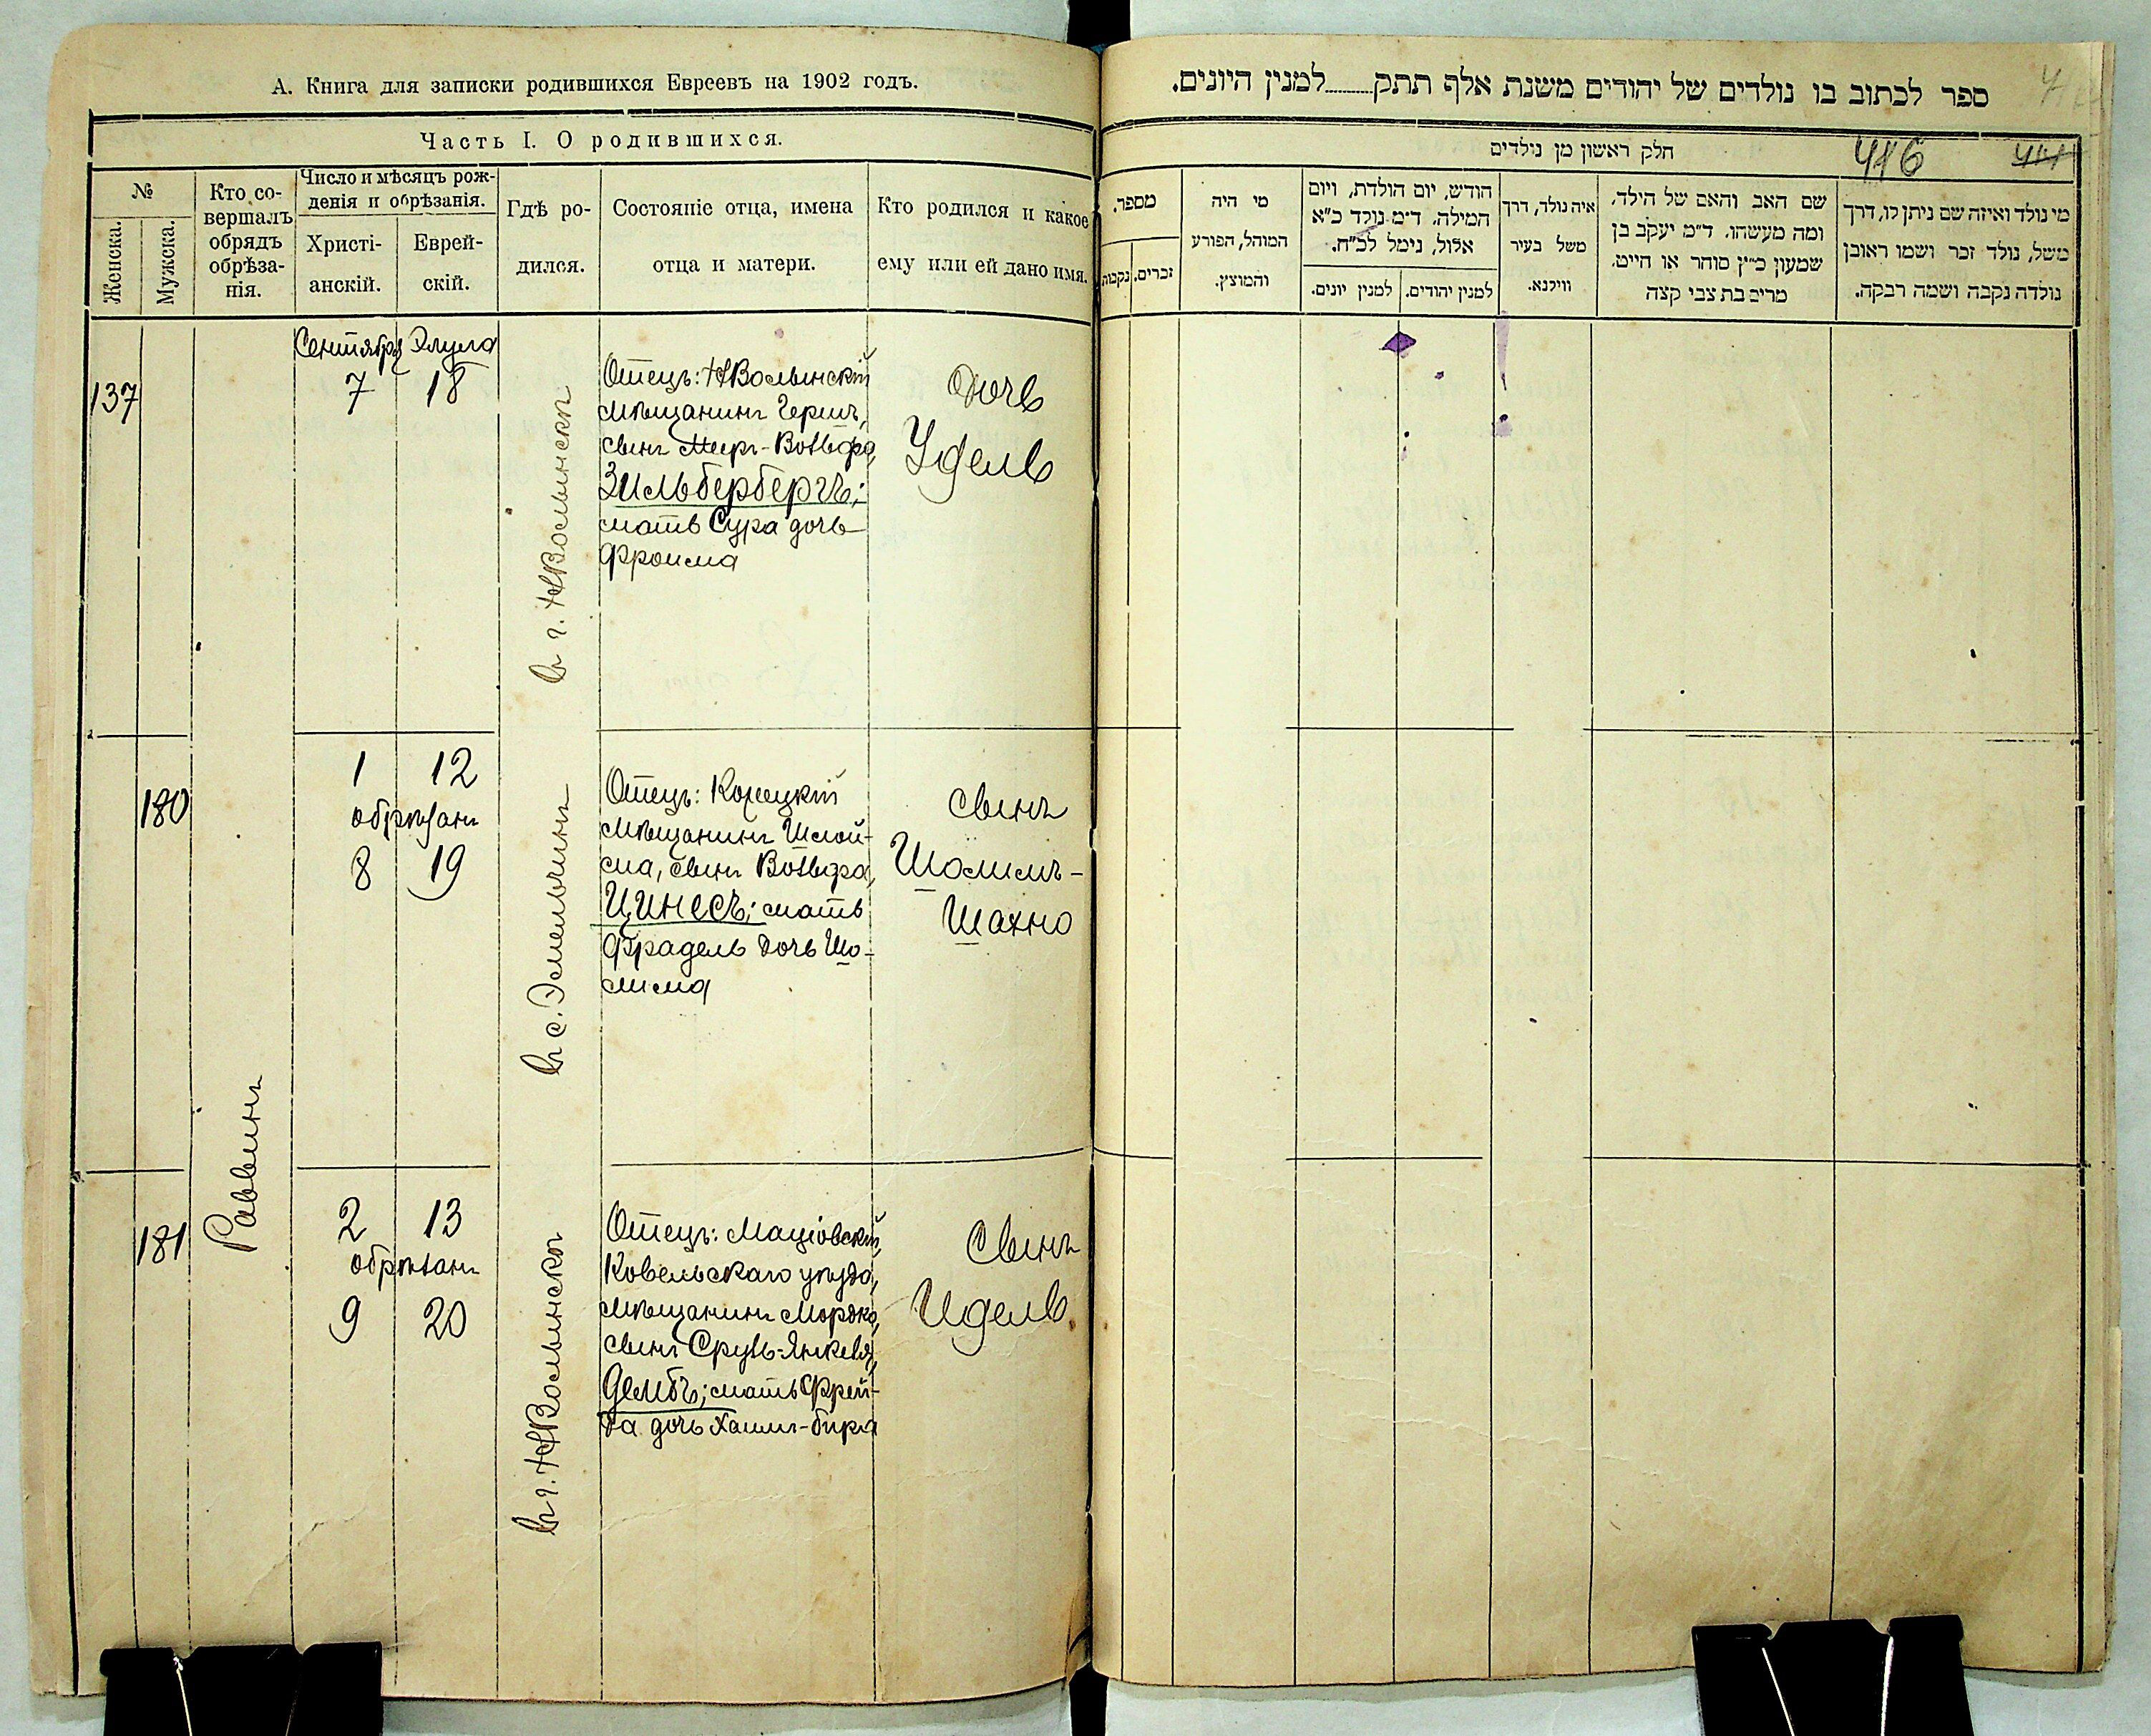 А. Книга для записки родившихся Евреевъ на 1902 годъ.
Часть I. О родившихся.
№
Женска.
Мужска.
Кто со-
вершалъ
обрядъ
обрѣза-
нія.
Число и мѣсяцъ рож-
денія и обрѣзанія.
Христі-
анскій.
Еврей-
скій.
Гдѣ ро-
дился.
Состояніе отца, имена
отца и матери.
Кто родился и какое
ему или ей дано имя.
Сентября Элула
137
7 18
в г. НВолынскѣ
Отецъ: НВолынскій
мѣщанинъ Гершъ,
сынъ Меер-Вольфа,
Зильбербергъ;
мать Сура дочь
Фроима
Дочь
Удель
180
1 12
обрѣзанъ
8 19
в с. Эмельчинѣ
Отецъ: Корецкій
мѣщанинъ Шлой-
ма, сынъ Вольфа,
Цинесъ; мать
Фрадель дочь Шо-
лима
сынъ
Шолимъ-
Шахно
Раввинъ
181
2 13
обрѣзанъ
9 20
в г. НВолынскѣ
Отецъ: Маціовскій,
Ковельскаго уѣзда,
мѣщанинъ Мордко,
сынъ Сруль-Янкеля,
Дембъ; мать Фрей-
да дочь Хаим-Бера
Сынъ
Идель.
ספר לכתוב בו נולדים של יהודים משנת אלף תתק........למנין היונים.
חלק ראשון מן נולדים
416
414
מספר.
זכרים.
נקבות
מי היה
המוהל, הפורע
והמוצץ.
הודש, יום הולדת, ויום
המילה. ד״מ נולד כ״א
אלול, נימל לכ״ח.
למנין יהודים.
למנין יונים.
איה נולד, דרך
משל בעיר
ווילנא.
שם האב והאם של הילד.
ומה מעשהו. ד״מ יעקב בן
שמעון כ״ץ סוהר או חייט.
מרים בת צבי קצה
מי נולד ואיזה שם ניתן לו, דרך
משל, נולד זכר ושמו ראובן
נולדה נקבה ושמה רבקה.